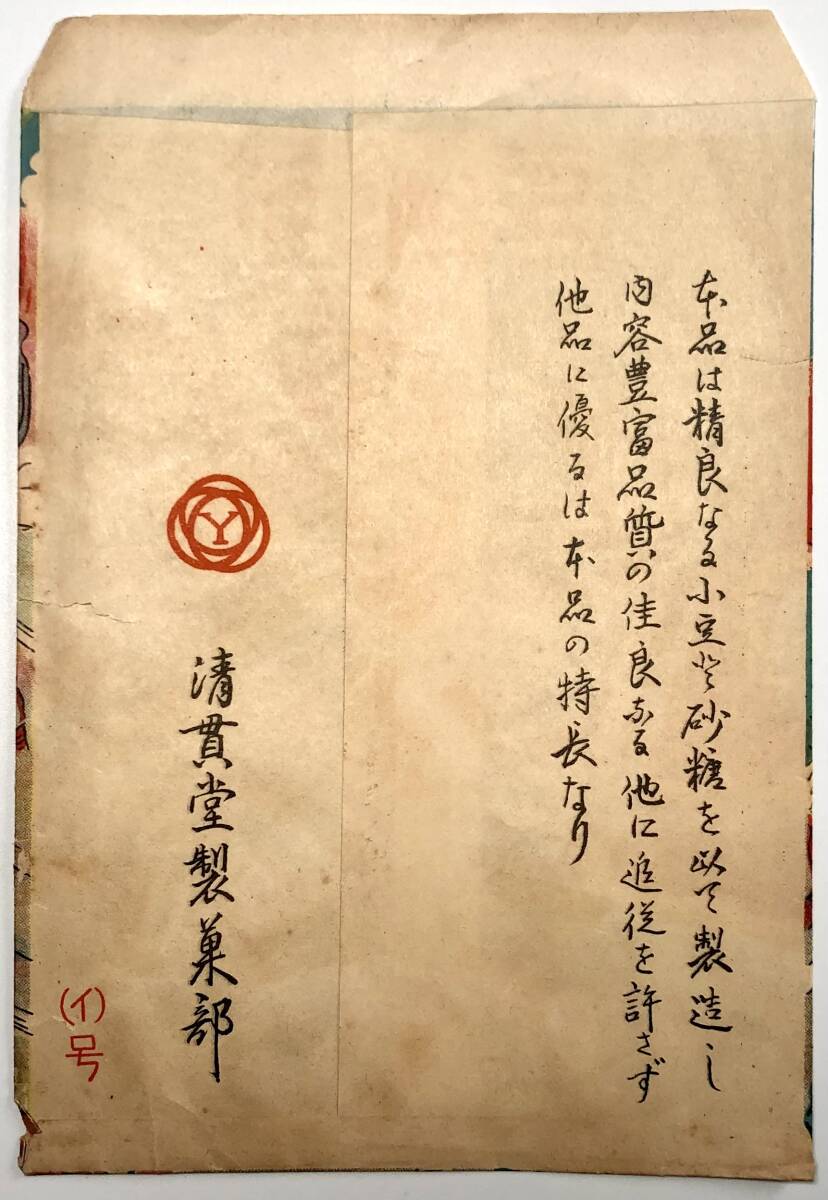 本品は精良なる小豆と砂糖を以て製造し
内容豊富品質の佳良なる他に追従を許さず
他品に優るは本品の特長なり
Y
清貫堂製菓部
(イ)号